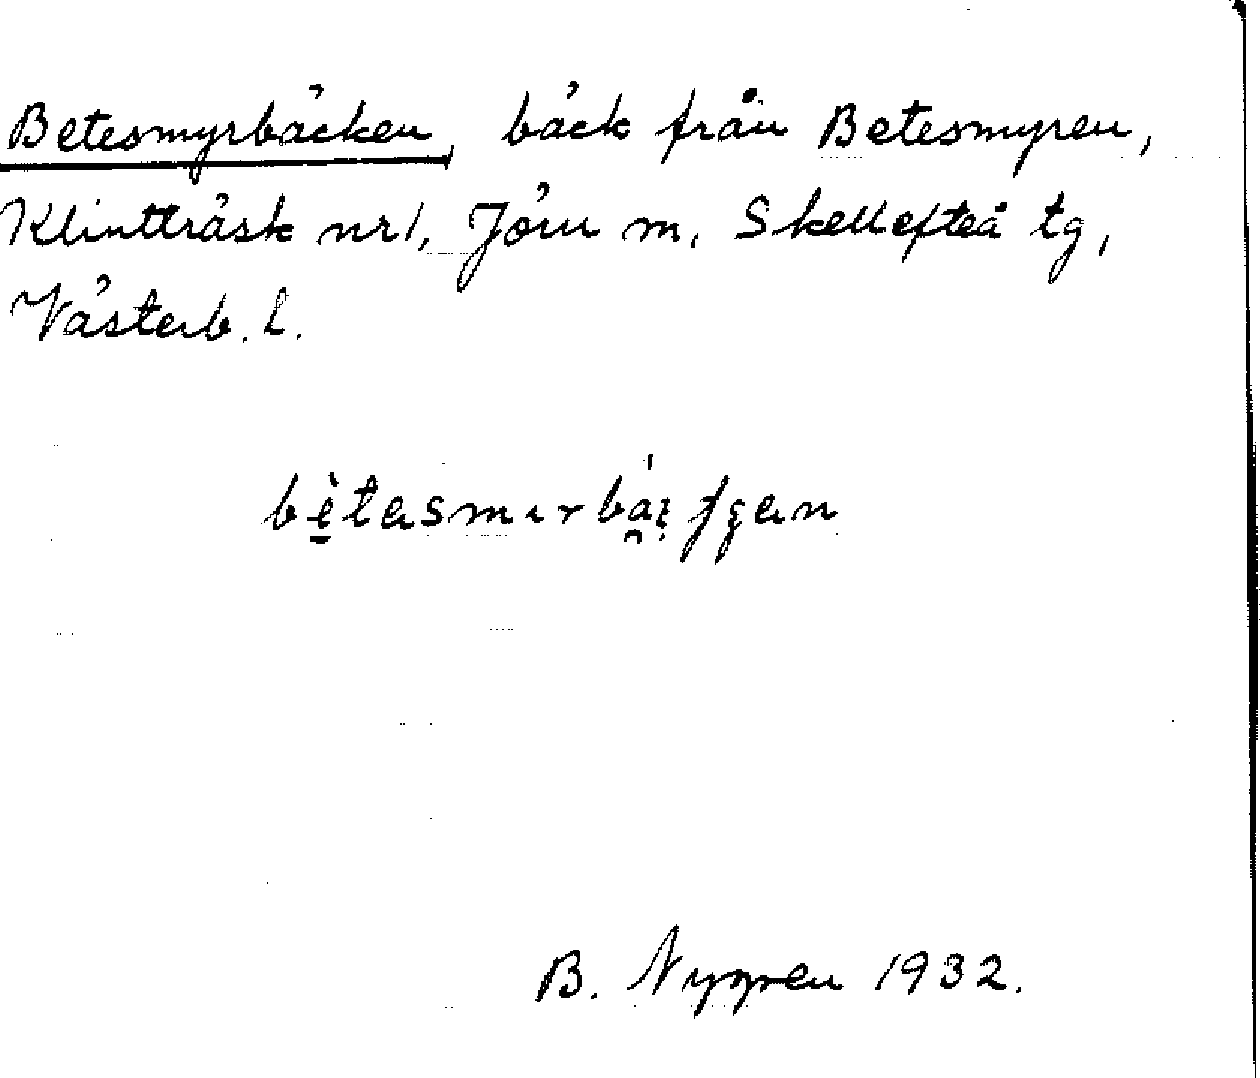 Betesmyrbäcken, bäck från Betesmyren,
Klintträsk nr 1, Jörn m. Skellefteå tg,
Västerb. l.
B. Nygren 1932.